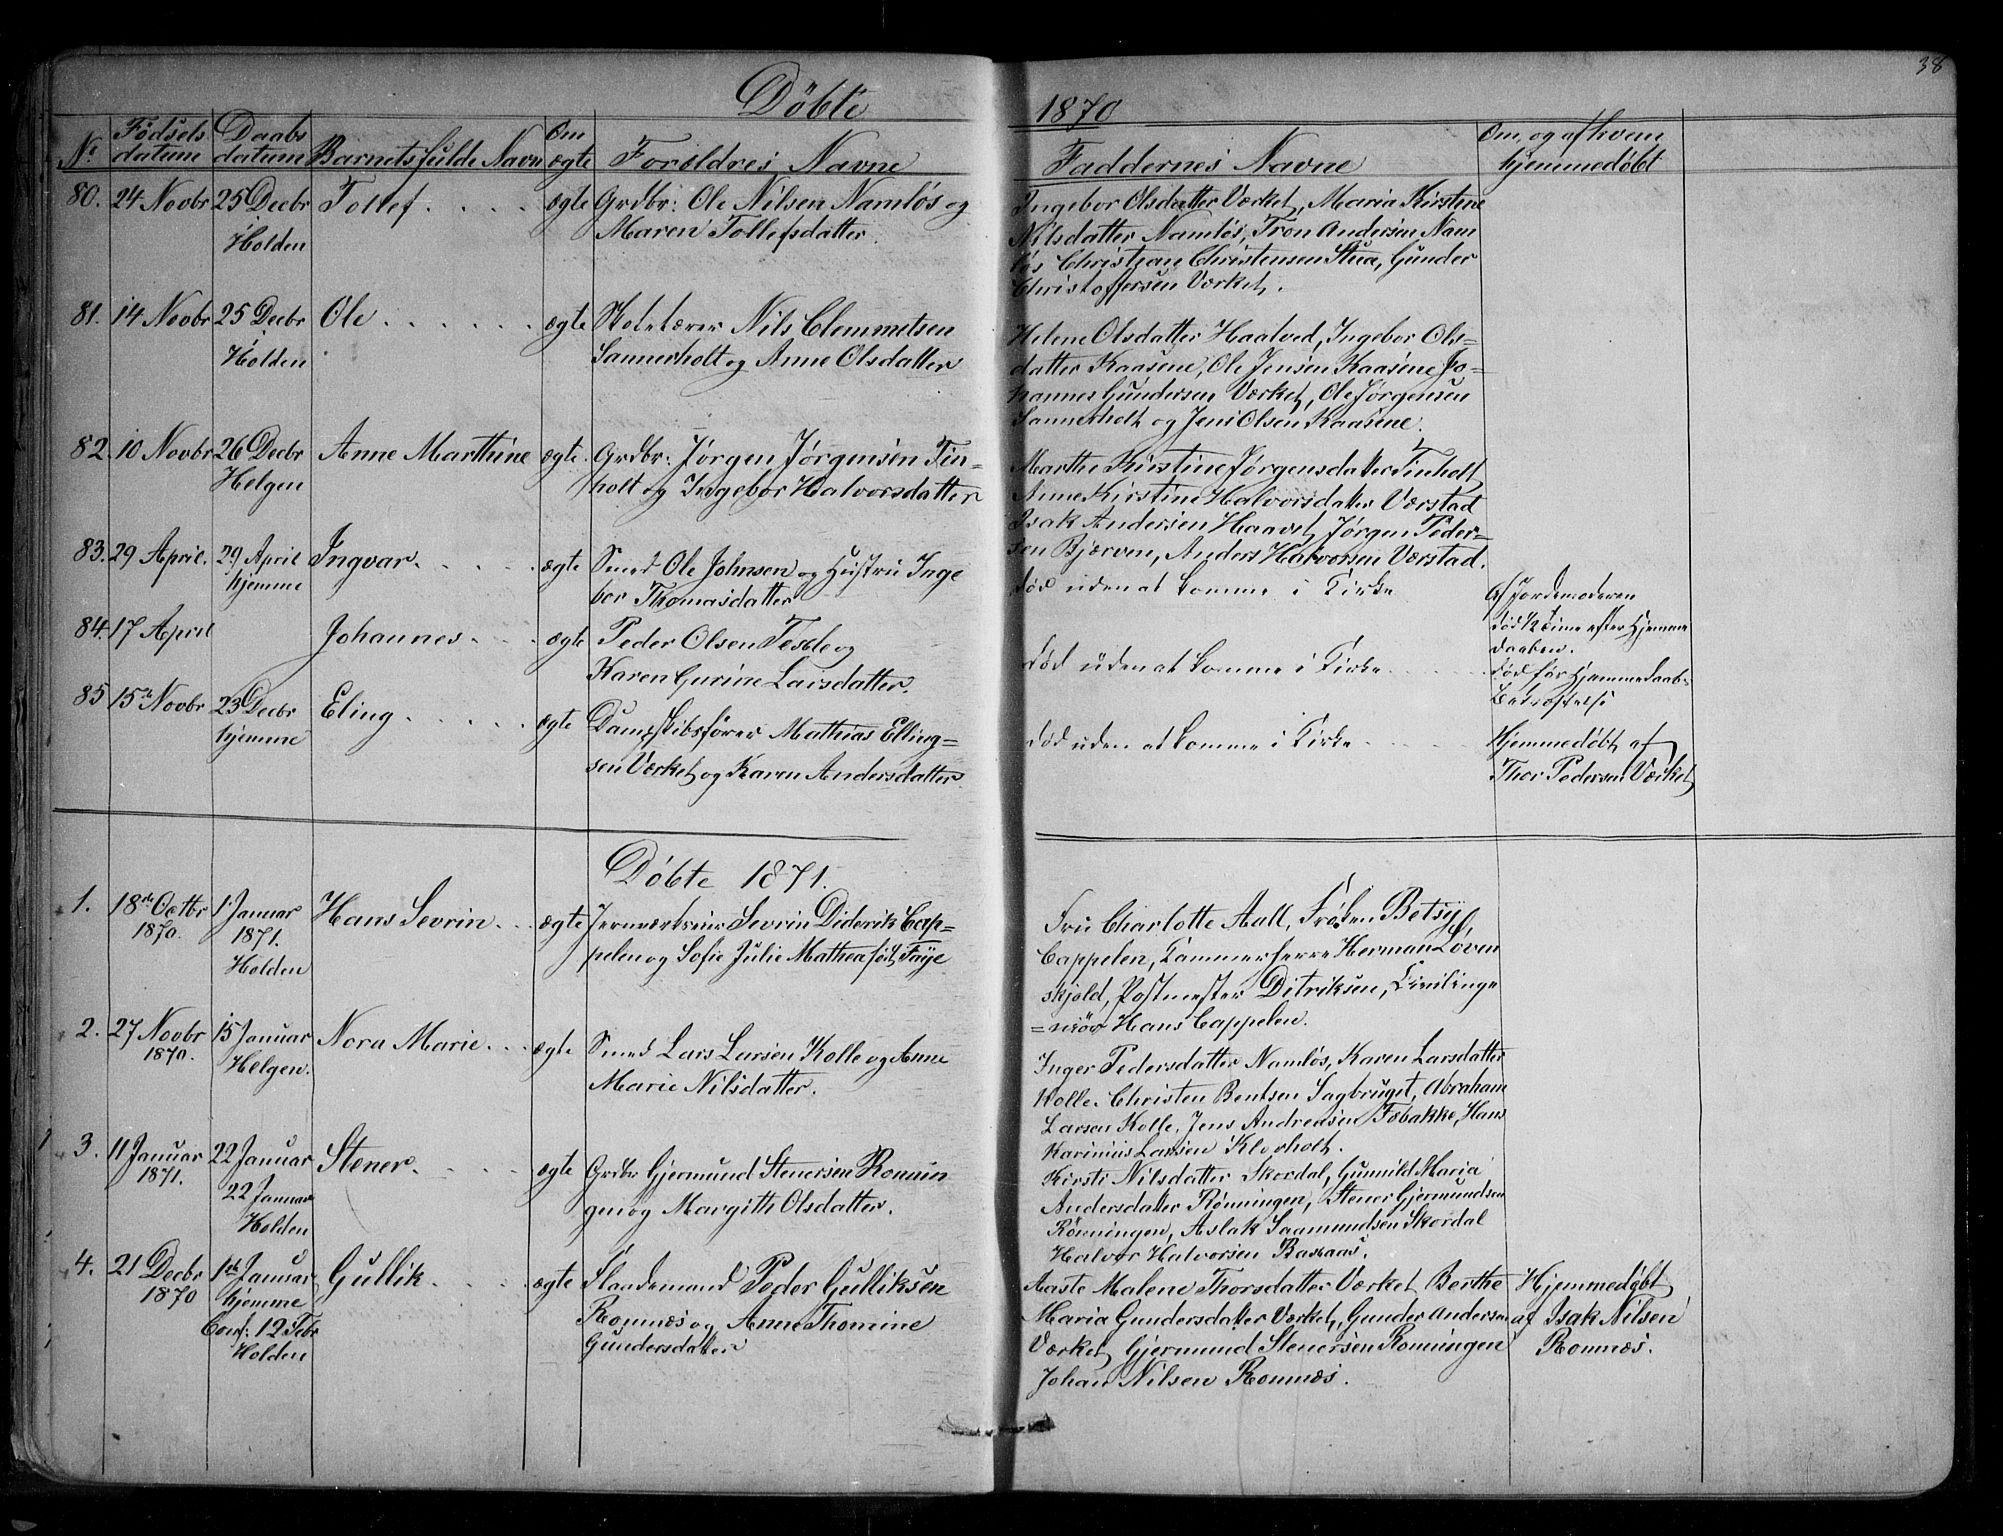 38
Döbte 1870
No Födsels datum Daabs datum Barnets fulde Navn Om ægte Forældres Navne Faddernes Navne Om og af hvem hjemmedøbt
80. 24 Novbr 25 Decbr Holden Tollef. ægte Grdbr: Ole Nilsen Namløs og
Maren Tollefsdatter.
Ingebor Olsdatter Værket, Maria Kirstine
Nilsdatter Namløs, Tron Andersen Nam
løs Christian Christensen Stua, Gunder
Christoffersen Værket.
81. 14 Novbr 25 Decbr Holden Ole ægte Skolelærer Nils Clemmetsen
Sannerholt og Anne Olsdatter
Helene Olsdatter Haatved, Ingebor Ols-
datter Kaasene, Ole Jensen Kaasene Jo-
hannes Gundersen Værket, Ole Jørgensen
Sannerholt og Jens Olsen Kaasene.
82. 10 Novbr 26 Decbr Helgen Anne Marthine ægte. Grdbr: Jørgen Jørgensen Tin-
holt og Ingebor Halvorsdatter
Marthe Kirstine Jørgensdatter Tinholt
Anne Kirstine Halvorsdatter Værstad
Isak Andersen Haavet, Jørgen Peder-
sen Bjerven, Anders Halvorsen Værstad.
83. 29 April. 29 April hjemme Ingvar. ægte Smed Ole Johnsen og Hustru Inge
bor Thomasdatter
død uden at komme i Kirke
af Jordemoderen
død ½ Time efter Hjemme
daaben.
84. 17 April Johannes. ægte Peder Olsen Teble og
Karen Gurine Larsdatter.
død uden at komme i Kirke
død før Hjemmedaab-
Bekræftelse
85 15de Novbr 23 Decbr hjemme Eling ægte Dampskibsfører Mathias Elling-
sen Værket og Karen Andersdatter.
død uden at komme i Kirke
Hjemmedøbt af
Thor Pedersen Værket
Döbte 1871.
1. 18de Octbr 1870. 1 Januar 1871. Holden Hans Sevrin ægte Jernværkseier Sevrin Diderik Cap-
pelen og Sofie Julie Mathea født Faye
Fru Charlotte Aall, Frøken Betsy
Cappelen, Kammerherre Herman Løven
skjold, Postmester Ditriksen, Civilinge
=niør Hans Cappelen.
2. 27 Novbr 1870. 15 Januar Helgen. Nora Marie ægte Smed Lars Larsen Kolle og Anne
Marie Nilsdatter.
Inger Pedersdatter Namløs, Karen Larsdatter
Kolle. Christen Bentsen Sagbruget, Abraham
Larsen Kolle. Jens Andreasen Fobakke, Hans
Karinius Larsen Klovholt.
3. 11 Januar 1871. 22 Januar
22 Januar Holden Stener. ægte Grdbr Gjermund Stenersen Rønnin
gen og Margith Olsdatter.
Kirsti Nilsdatter Skordal, Gunnild Maria
Andersdatter Rønningen, Stener Gjermundsen
Rønningen, Aslak Saamundsen Skordal
Halvor Halvorsen Rasaas.
4. 21 Decbr 1870 1ste Januar hjemme
Conf: 12 Febr Holden Gullik ægte Strandemand Peder Gulliksen
Romnæs og Anne Thomine
Gundersdatter
Aaste Malene Thorsdatter Værket Berthe
Maria Gundersdatter Værket, Gunder Andersen
Værket, Gjermund Stenersen Rønningen
Johan Nilsen Romnæs.
Hjemmedøbt
af Isak Nilsen
Romnæs.